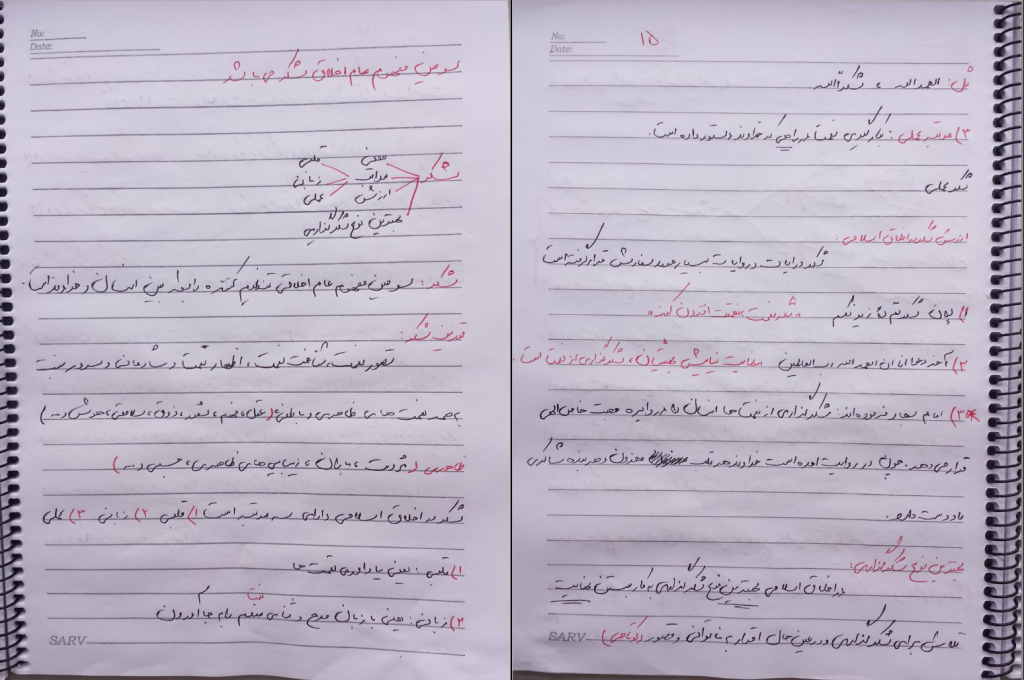 No:
Date:
سومین مفهوم عام اخلاقی شکر می باشد
شکر
معنی
مراتب
ارزش
بهترین نوع شکرگزاری
قلبی
زبانی
عملی
شکر: سومین مفهوم عام اخلاقی تنظیم کننده رابطه بین انسان و خداوند است.
تعریف شکر:
تصور نعمت، شناخت نعمت، اظهار نعمت و شادمانی و سرور نسبت
به همه نعمت های ظاهری و باطنی (عقل، فهم، شعور، ذوق، سلامتی، هوش و ...)
ظاهری (ثروت، باران، زیبایی های ظاهری، جسمی و ...)
شکر در اخلاق اسلامی دارای سه مرتبه است ۱) قلبی ۲) زبانی ۳) عملی
۱) قلبی: یعنی یادآوری نعمت ها
نعمت
۲) زبانی: یعنی با زبان مدح و ثنای منعم را به جا آوردن
SARV
No:
Date:
۱۵
مثل: الحمدالله ، شکراًلله
۳) مرتبه عملی: بکارگیری نعمت در راهی که خداوند دستور داده است.
شکر عملی
ارزش شکر در اخلاق اسلامی:
شکر در آیات و روایات بسیار مورد سفارش قرار گرفته است
۱) لان شکرتم لازیدنکم ، شکر نعمت، نعمتت افزون کند.
۲) آخر دعوانا ان الحمدالله رب العالمین نیایش بهشتیان، شکرگزاری از نعمت است.
۳) امام سجاد فرموده اند: شکرگزاری از نعمت ها انسان را در دایره محبت خاص الهی
قرار می دهد. چون در روایت آمده است خداوند هر قلب محزون و هر بنده شاکری
را دوست دارد.
بهترین نوع شکرگزاری:
در اخلاق اسلامی بهترین نوع شکرگزاری به کار بستن نهایت
تلاش برای شکرگزاری و در عین حال اقرار به ناتوانی و قصور (کوتاهی)
SARV